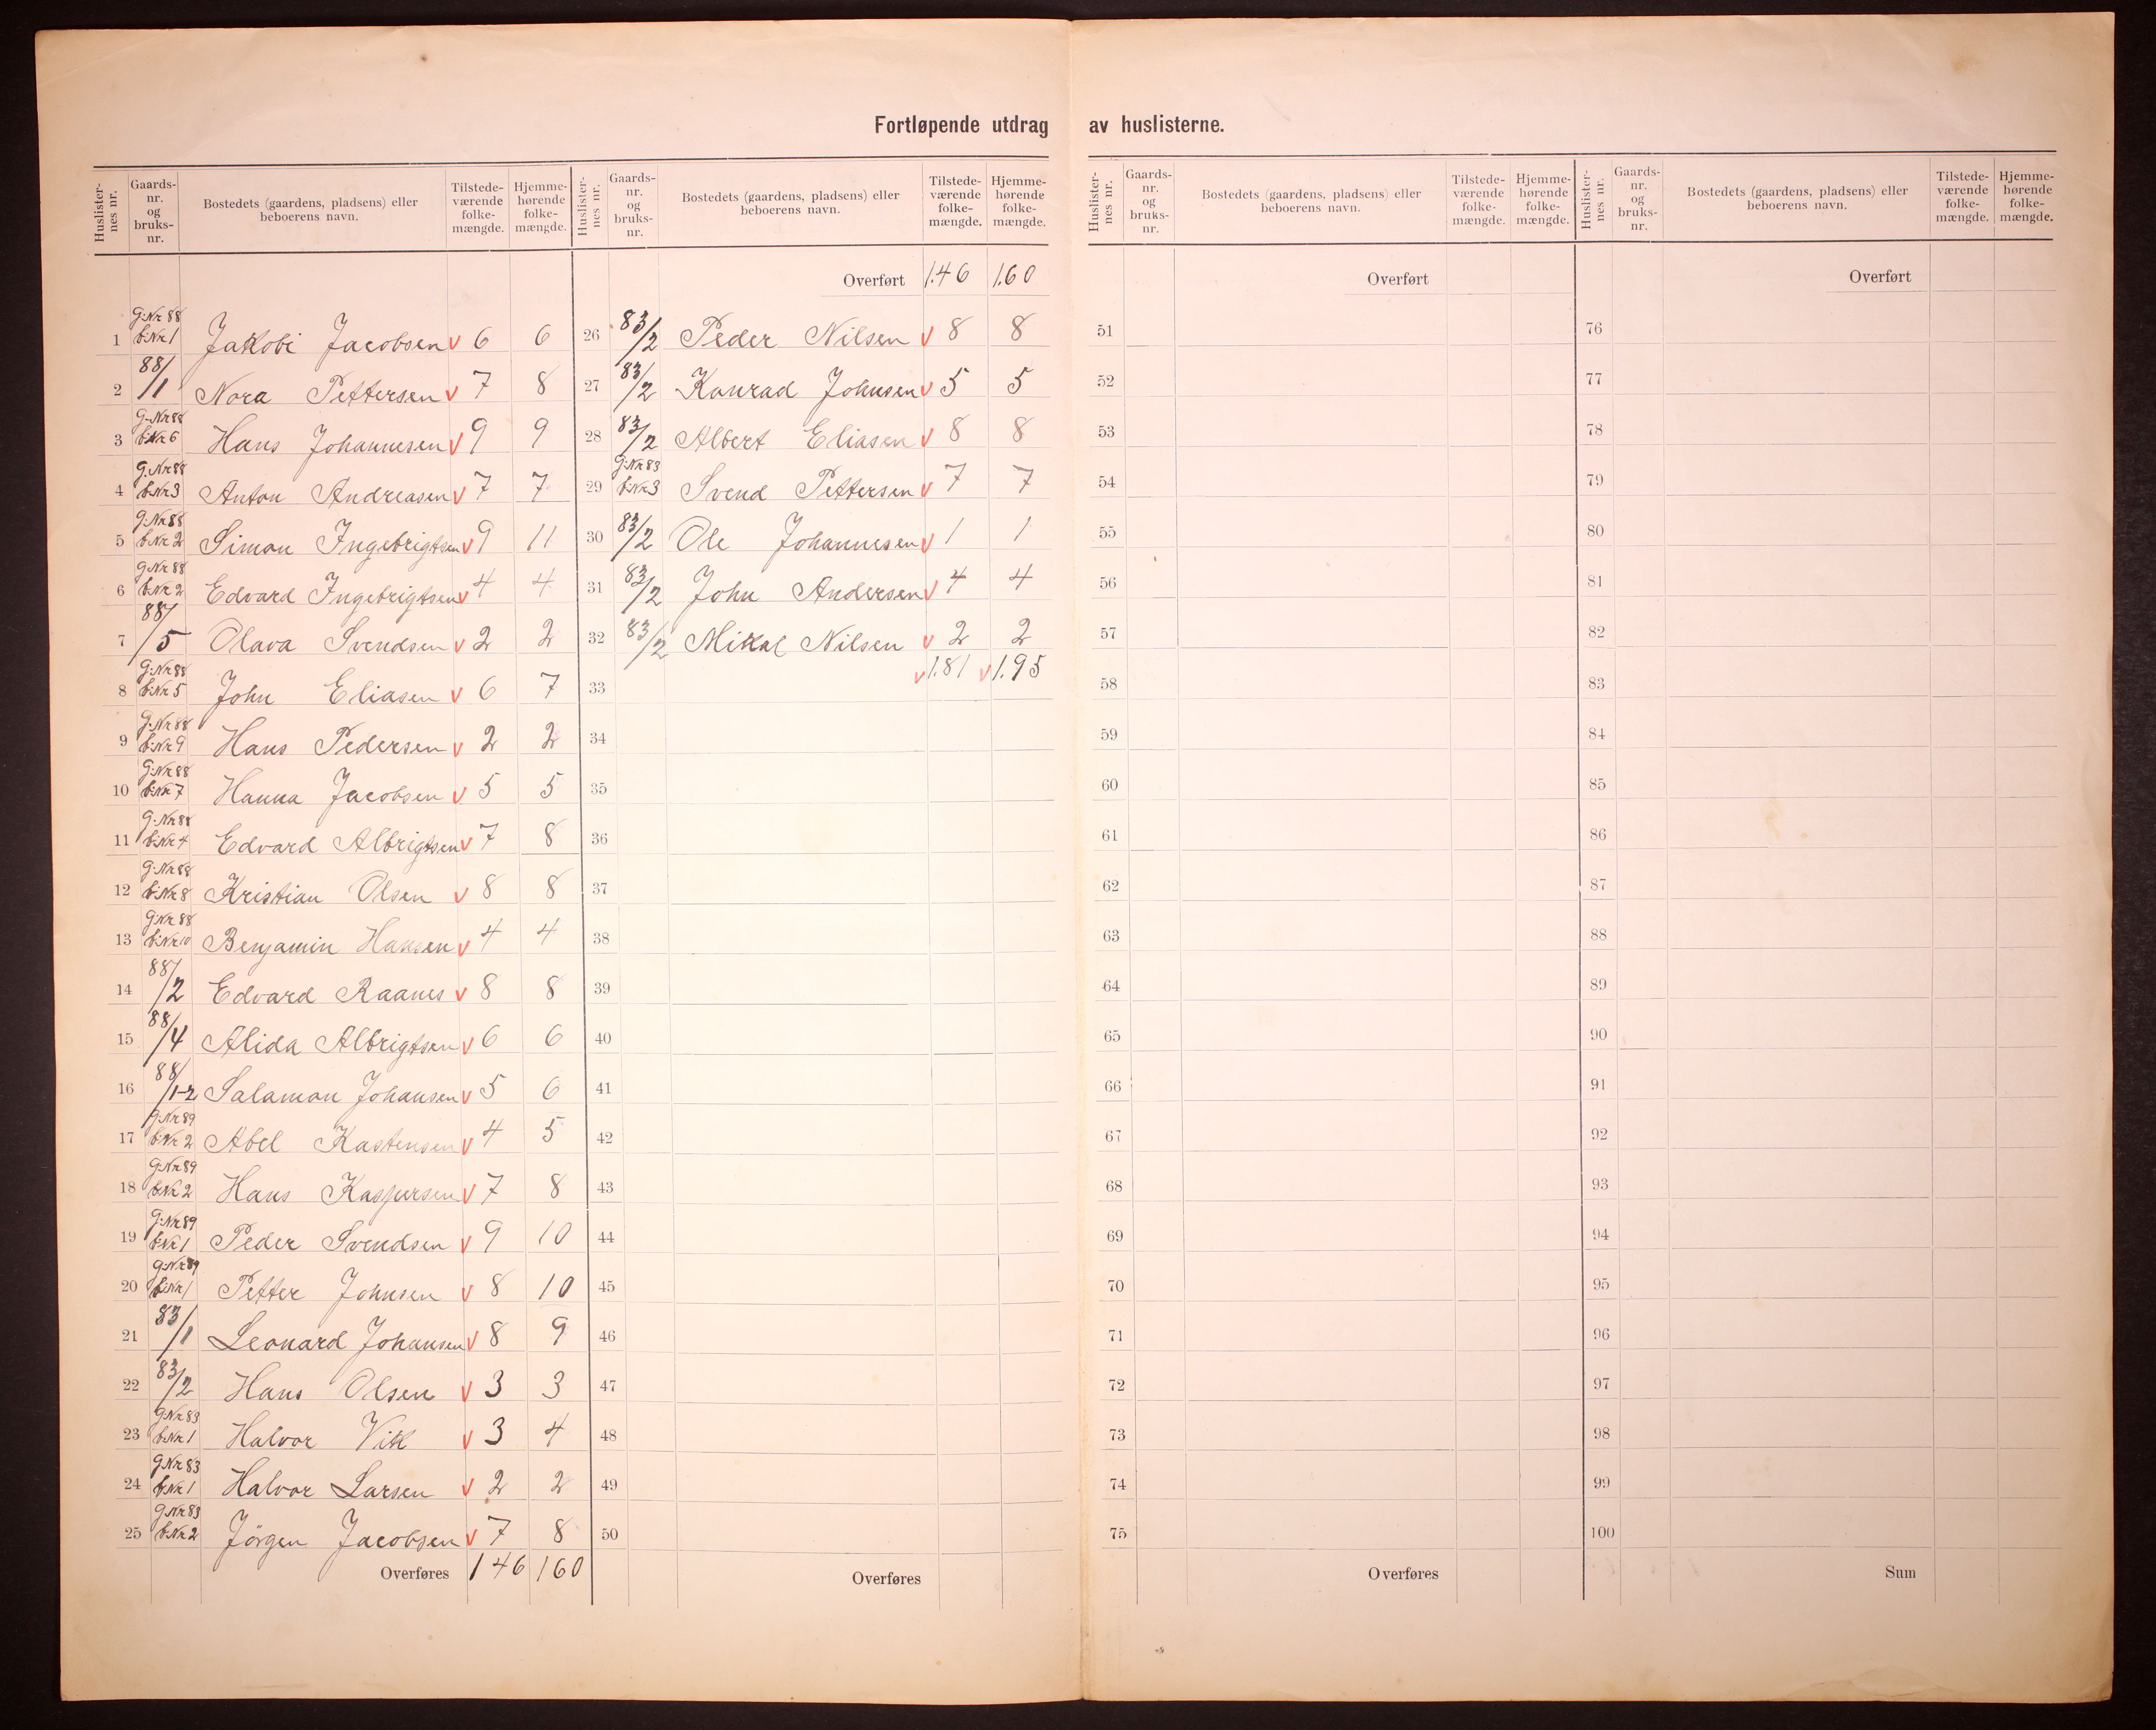 Fortløpende utdrag av huslisterne.
Huslister-nes nr. Gaards-nr. og bruks-nr. Bostedets (gaardens, pladsens) eller beboerens navn. Tilstede-værende folke-mængde. Hjemme-hørende folke-mængde.
1 G:Nr 88 b:Nr 1 Jakobi Jacobsen v 6 6
2 88/1 Nora Pettersen v 7 8
3 G:Nr 88 b:Nr 6 Hans Johannesen v 9 9
4 G:Nr 88 b:Nr 3 Anton Andreasen v 7 7
5 G:Nr 88 b:Nr 2 Simon Ingebrigtsen v 9 11
6 G:Nr 88 b:Nr 2 Edvard Ingebrigtsen v 4 4
7 88/5 Olava Svendsen v 2 2
8 G:Nr 88 b:Nr 5 John Eliasen v 6 7
9 G:Nr 88 b:Nr 9 Hans Pedersen v 2 2
10 G:Nr 88 b:Nr 7 Hanna Jacobsen v 5 5
11 G:Nr 88 b:Nr 4 Edvard Albrigtsen v 7 8
12 G:Nr 88 b:Nr 8 Kristian Olsen v 8 8
13 G:Nr 88 b:Nr 10 Benjamin Hansen v 4 4
14 88/2 Edvard Raanes v 8 8
15 88/4 Alida Albrigtsen v 6 6
16 88/1-2 Salamon Johansen v 5 6
17 G:Nr 89 b:Nr 2 Abel Kastensen v 4 5
18 G:Nr 89 b:Nr 2 Hans Kaspersen v 7 8
19 G:Nr 89 b:Nr 1 Peder Svendsen v 9 10
20 G:Nr 89 b:Nr 1 Petter Johnsen v 8 10
21 83/1 Leonard Johansen v 8 9
22 83/2 Hans Olsen v 3 3
23 G:Nr 83 b:Nr 1 Halvor Vik v 3 4
24 G:Nr 83 b:Nr 1 Halvor Larsen v 2 2
25 G:Nr 83 b:Nr 2 Jörgen Jacobsen v 7 8
Overføres 146 160
Huslister-nes nr. Gaards-nr. og bruks-nr. Bostedets (gaardens, pladsens) eller beboerens navn. Tilstede-værende folke-mængde. Hjemme-hørende folke-mængde.
Overført 146 160
26 83/2 Peder Nilsen v 8 8
27 83/2 Konrad Johnsen v 5 5
28 83/2 Albert Eliasen v 8 8
29 G:Nr 83 b:Nr 3 Svend Pettersen v 7 7
30 83/2 Ole Johannesen v 1 1
31 83/2 John Andersen v 4 4
32 83/2 Mikal Nilsen v 2 2
33 v 181 v 195
34
35
36
37
38
39
40
41
42
43
44
45
46
47
48
49
50
Overføres
Huslister-nes nr. Gaards-nr. og bruks-nr. Bostedets (gaardens, pladsens) eller beboerens navn. Tilstede-værende folke-mængde. Hjemme-hørende folke-mængde.
Overført
51
52
53
54
55
56
57
58
59
60
61
62
63
64
65
66
67
68
69
70
71
72
73
74
75
Overføres
Huslister-nes nr. Gaards-nr. og bruks-nr. Bostedets (gaardens, pladsens) eller beboerens navn. Tilstede-værende folke-mængde. Hjemme-hørende folke-mængde.
Overført
76
77
78
79
80
81
82
83
84
85
86
87
88
89
90
91
92
93
94
95
96
97
98
99
100
Sum